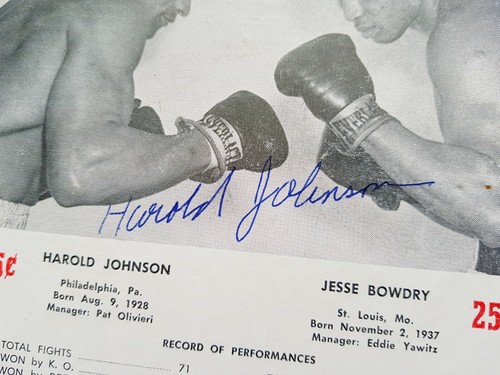 EVERLAST
EVERLAST
Harold Johnson
HAROLD JOHNSON
Philadelphia, Pa.
Born Aug. 9, 1928
Manager: Pat Olivieri
JESSE BOWDRY
St. Louis, Mo.
Born November 2, 1937
Manager: Eddie Yawitz
5¢
25
RECORD OF PERFORMANCES
TOTAL FIGHTS 71
WON by K. O.
WON by